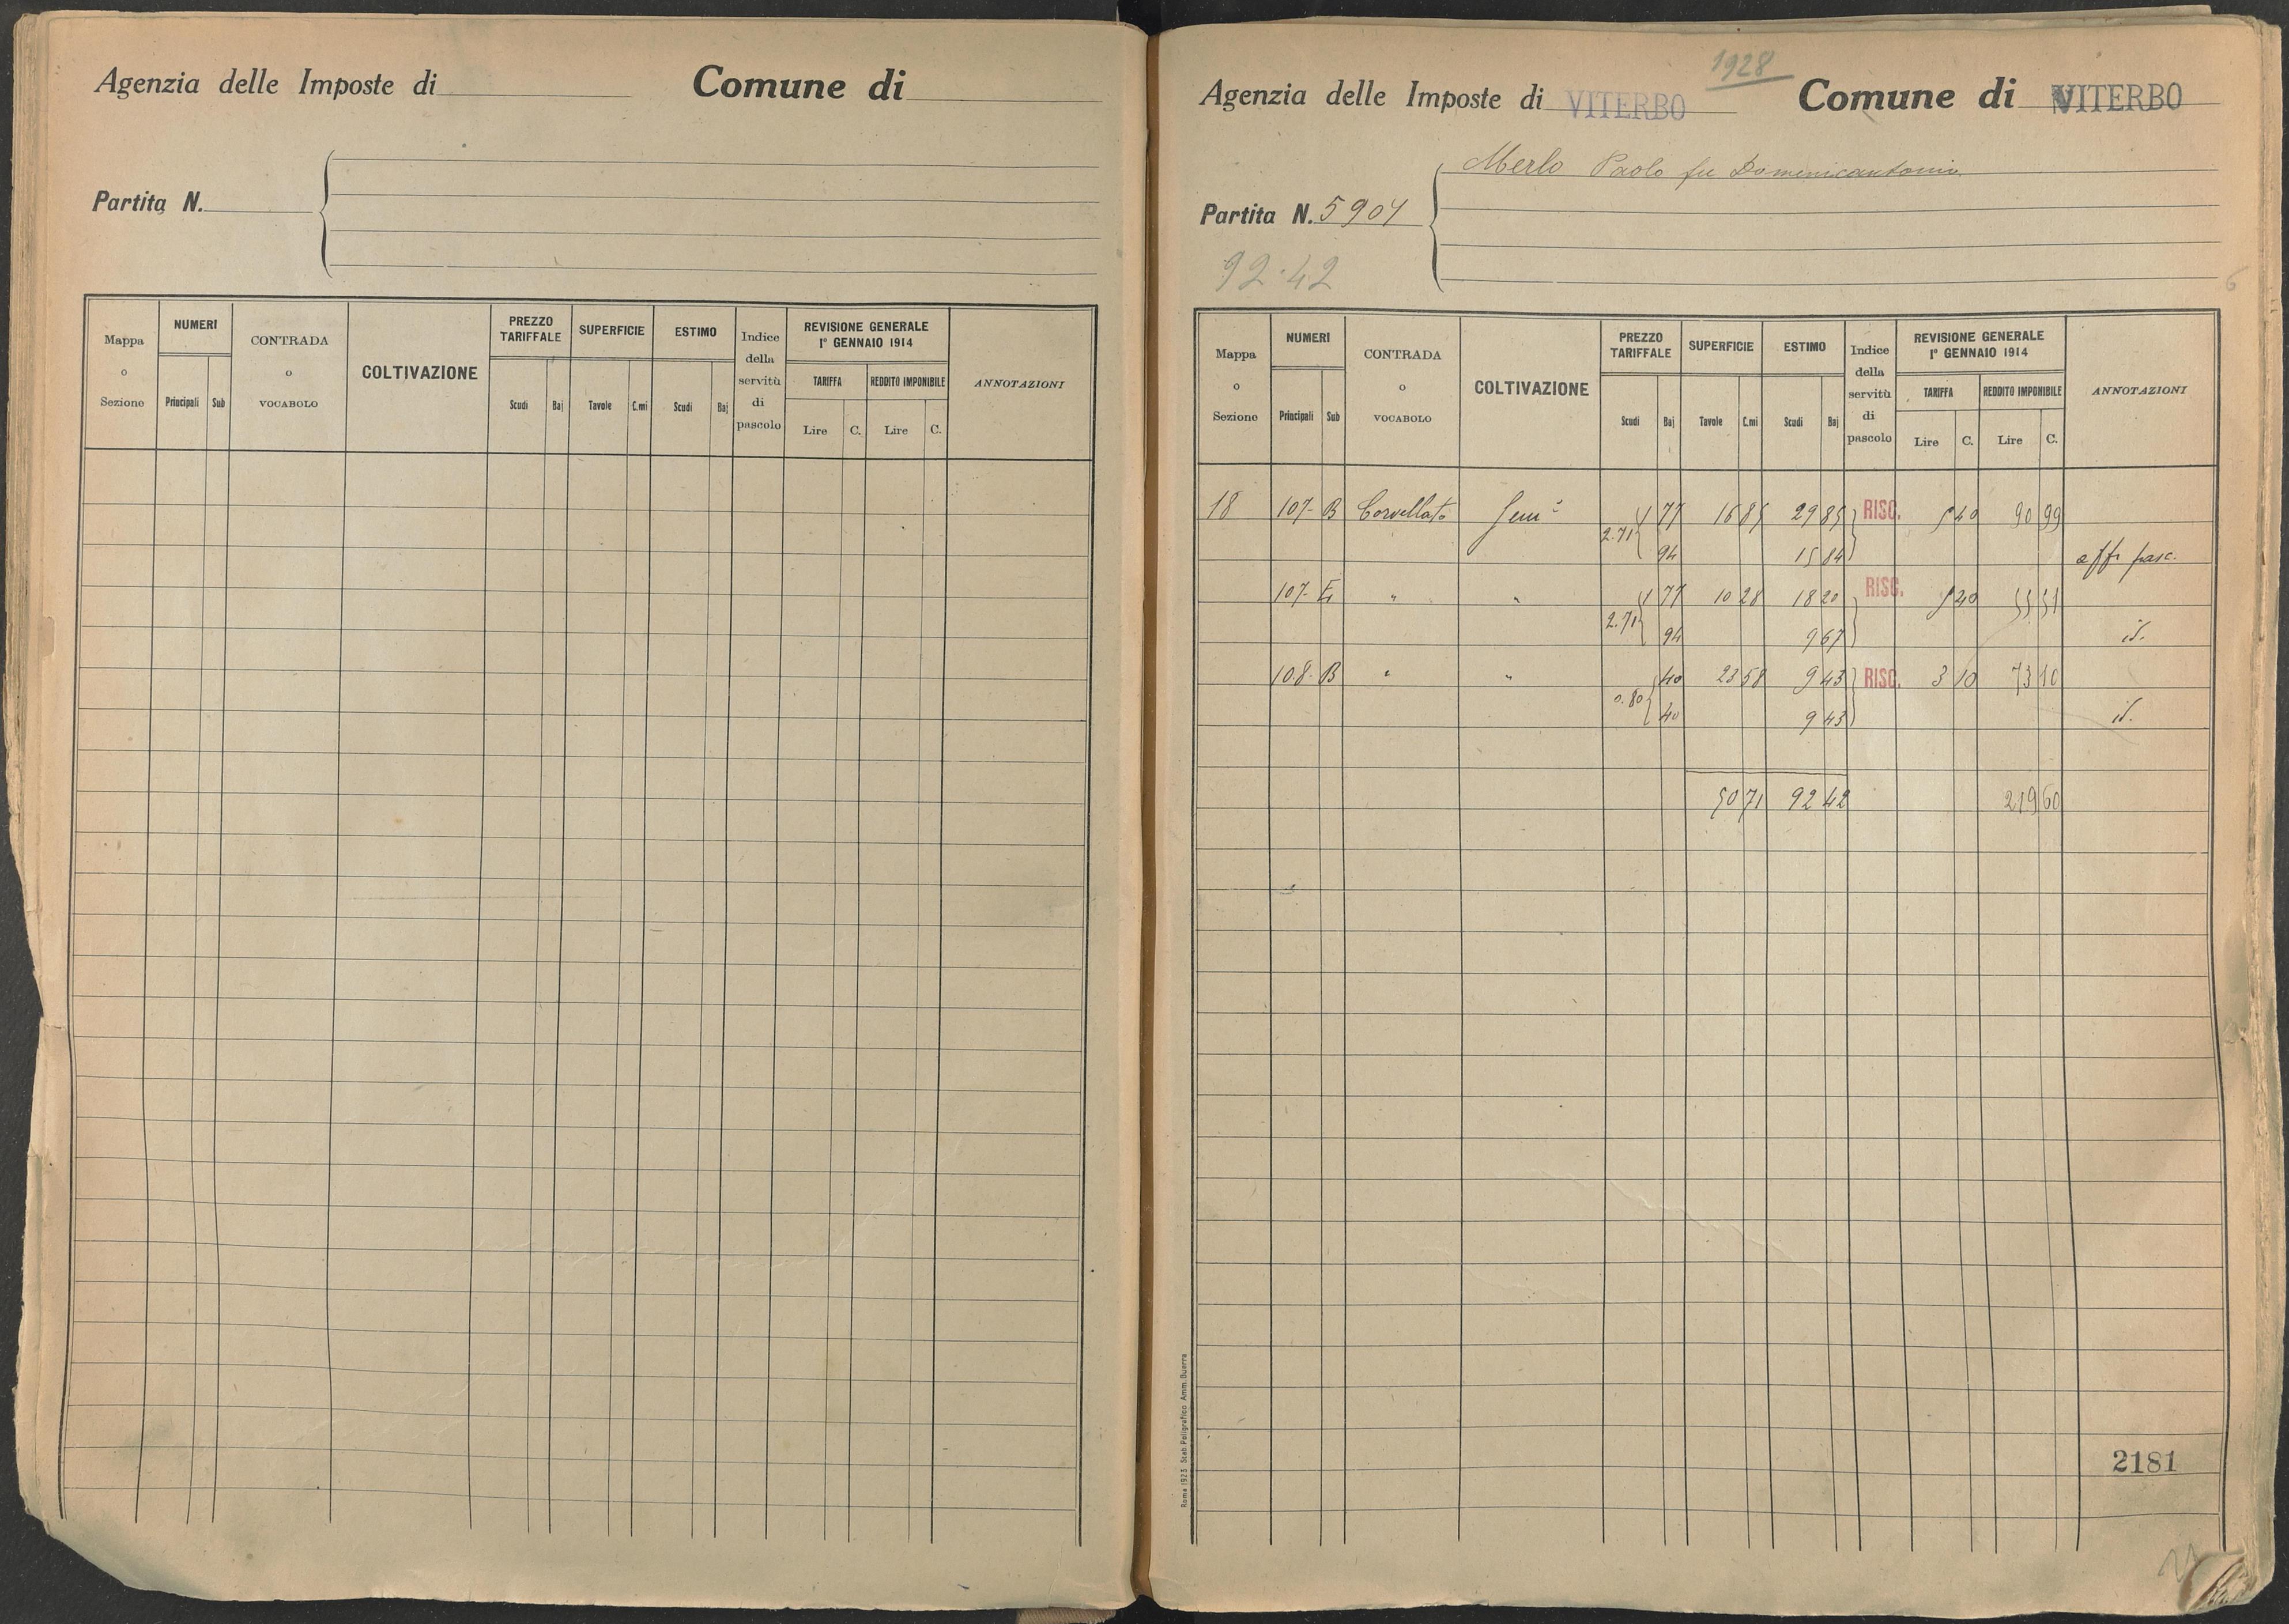 Agenzia delle Imposte di Comune di
Partita N.
Mappa o Sezione NUMERI Principali Sub CONTRADA o VOCABOLO COLTIVAZIONE PREZZO TARIFFALE Scudi Baj SUPERFICIE Tavole C.mi ESTIMO Scudi Baj Indice della servitù di pascolo REVISIONE GENERALE 1° GENNAIO 1914 TARIFFA Lire C. REDDITO IMPONIBILE Lire C. ANNOTAZIONI
1928
Agenzia delle Imposte di VITERBO Comune di VITERBO
Merlo Paolo fu Domenicantonio
Partita N. 5904
92.42
Mappa o Sezione NUMERI Principali Sub CONTRADA o VOCABOLO COLTIVAZIONE PREZZO TARIFFALE Scudi Baj SUPERFICIE Tavole C.mi ESTIMO Scudi Baj Indice della servitù di pascolo REVISIONE GENERALE 1° GENNAIO 1914 TARIFFA Lire C. REDDITO IMPONIBILE Lire C. ANNOTAZIONI
18 107- B Corvellato Sem° 2.71 1 77 16 85 29 85 RISC. 5 40 90 99
94 15 84 aff. pasc.
107- E " " 2.71 1 77 10 28 18 20 RISC. 5 40 55 51
94 9 67 id.
108- B " " 0.80 40 23 58 9 43 RISC. 3 10 73 10
40 9 43 id.
50 71 92 42 219 60
2181
Roma 1923 Stab. Poligrafico Amm. Guerra